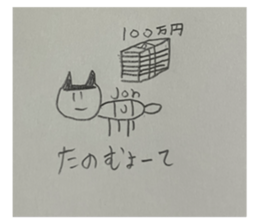 100万円
Jon
J
たのむよーて